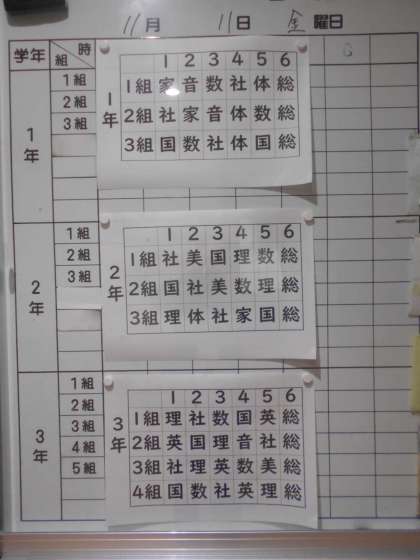 11月 11日 金曜日
学年 組 時
1年
1組
2組
3組
1年
1 2 3 4 5 6
1組 家 音 数 社 体 総
2組 社 家 音 体 数 総
3組 国 数 社 体 国 総
2年
1組
2組
3組
2年
1 2 3 4 5 6
1組 社 美 国 理 数 総
2組 国 社 美 数 理 総
3組 理 体 社 家 国 総
3年
1組
2組
3組
4組
5組
3年
1 2 3 4 5 6
1組 理 社 数 国 英 総
2組 英 国 理 音 社 総
3組 社 理 英 数 美 総
4組 国 数 社 英 理 総